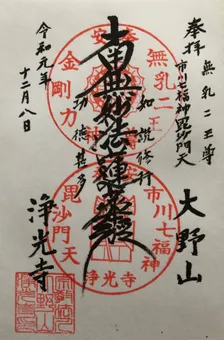 奉拝 無乳二王尊
市川七福神毘沙門天
大野山
無乳二王
市川七福神
如説修行
南無妙法蓮華経
功徳甚多
浄光寺
金剛力
毘沙門天
浄光寺
令和元年
十二月八日